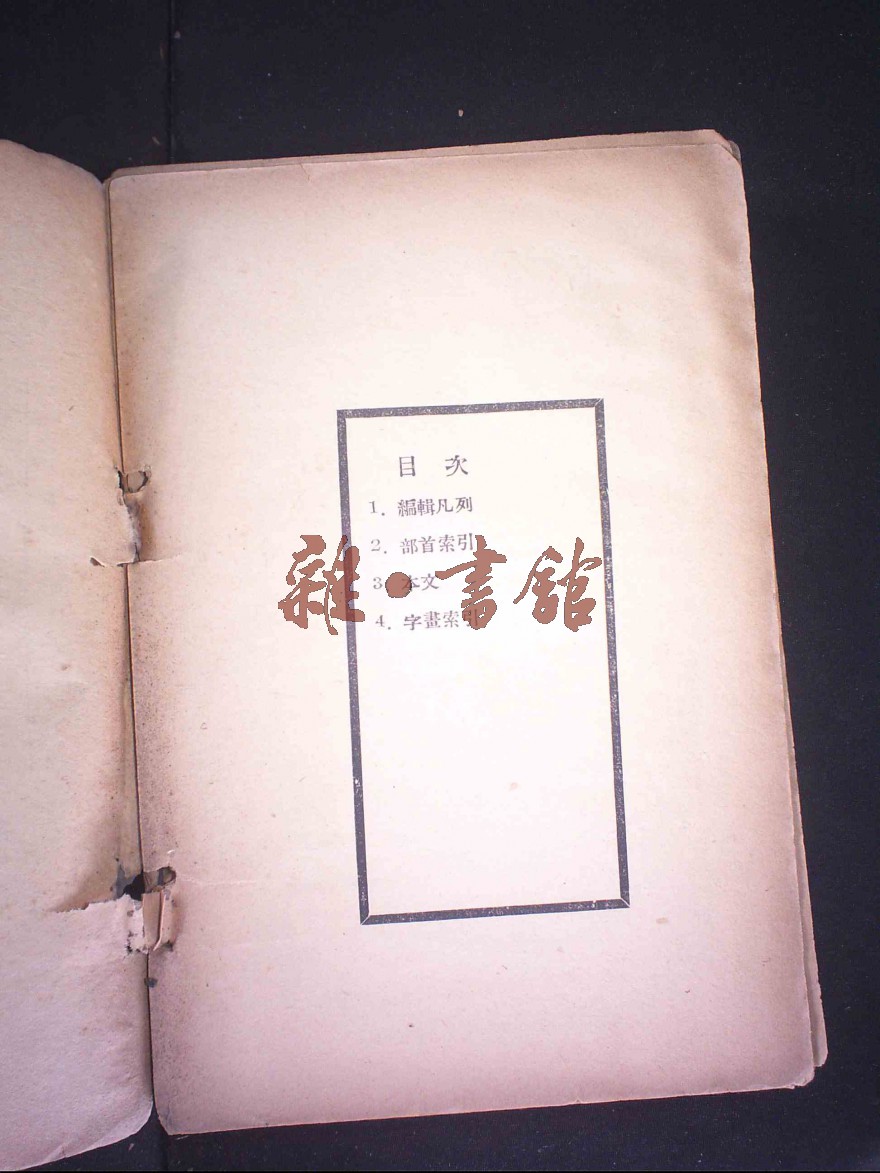 目次
1. 編輯凡列
2. 部首索引
3. 本文
4. 字畫索引
雜·書館